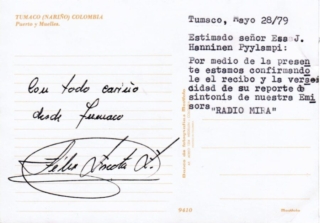 TUMACO (NARIÑO) COLOMBIA
Puerto y Muelles.
Con todo cariño
desde Tumaco
Tumaco, Mayo 28/79
Estimado señor Esa J.
Hanninen Pyylampi:
Por medio de la presen
te estamos confirmando
le el recibo y la verac
cidad de su reporte de
sintonía de nuestra Emi
sora
"RADIO MIRA"
9410